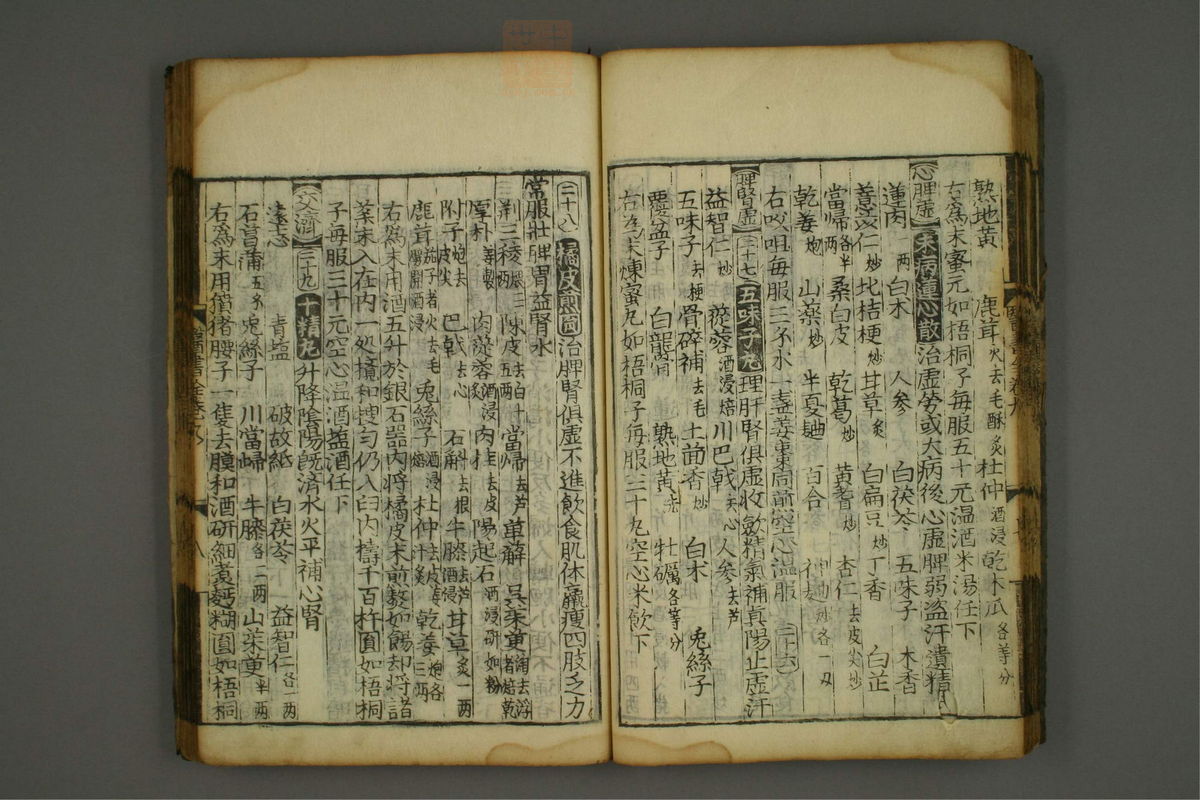 熟地黃 鹿茸火去毛酥炙 杜仲酒浸 乾木瓜各等分
右為末蜜元如梧桐子每服五十元温酒米湯任下
心脾虛 末病蓮心散 治虛勞或大病後心虛脾弱盗汗遺精
蓮肉 白木 人參 白茯苓 五味子 木香
薏苡仁炒 北桔梗炒 甘草炙 白扁豆炒 丁香 白芷
當歸各半兩 桑白皮 乾葛炒 黃耆炒 杏仁去皮尖炒
乾姜炮 山藥炒 半夏麯 百合
右㕮咀每服三水一盞姜棗同煎空心温服 三十六
脾腎虛 三十七 五味子丸 理肝腎俱虛收斂精氣補真陽止虛汗
益智仁炒 蓯蓉酒浸焙 川巴戟去心 人參去芦
五味子去梗 骨碎補去毛 土茴香炒 白术 兔絲子
覆盆子 白龍骨 熟地黃洗 牡礪各等分
右為末煉蜜丸如梧桐子每服三十丸空心米飲下
二十八 橘皮煎圓 治脾腎俱虛不進飲食肌体羸瘦四肢乏力
常服壯脾胃益腎水
荆三稜煨三兩 陳皮去白十五兩 當歸去芦 萆薢 吳茱萸淘去浮者焙乾
厚朴等製 肉蓯蓉酒浸炙 肉桂去皮 陽起石酒浸研如粉
附子炮去皮尖 巴戟去心 石斛去根 牛膝酒浸去芦 甘草炙一兩
鹿茸茄子者火去毛劈開酒浸 兔絲子酒浸焙 杜仲去皮姜汁炙 乾姜炮各三兩
右為末用酒五升於銀石器內將橘皮末煎熬如餳却將諸
藥末入在內一処攪和搜勻仍入臼內擣千百杵圓如梧桐
子每服三十元空心温酒盐酒任下
交濟 三十九 十精丸 升降陰陽旣濟水火平補心腎
遠志 青塩 破故紙 白茯苓 益智仁各一兩
石菖蒲五分 兔絲子 川當歸 牛膝各二兩 山茱萸半兩
右為末用獖猪腰子一隻去膜和酒研細煮麪糊圓如梧桐